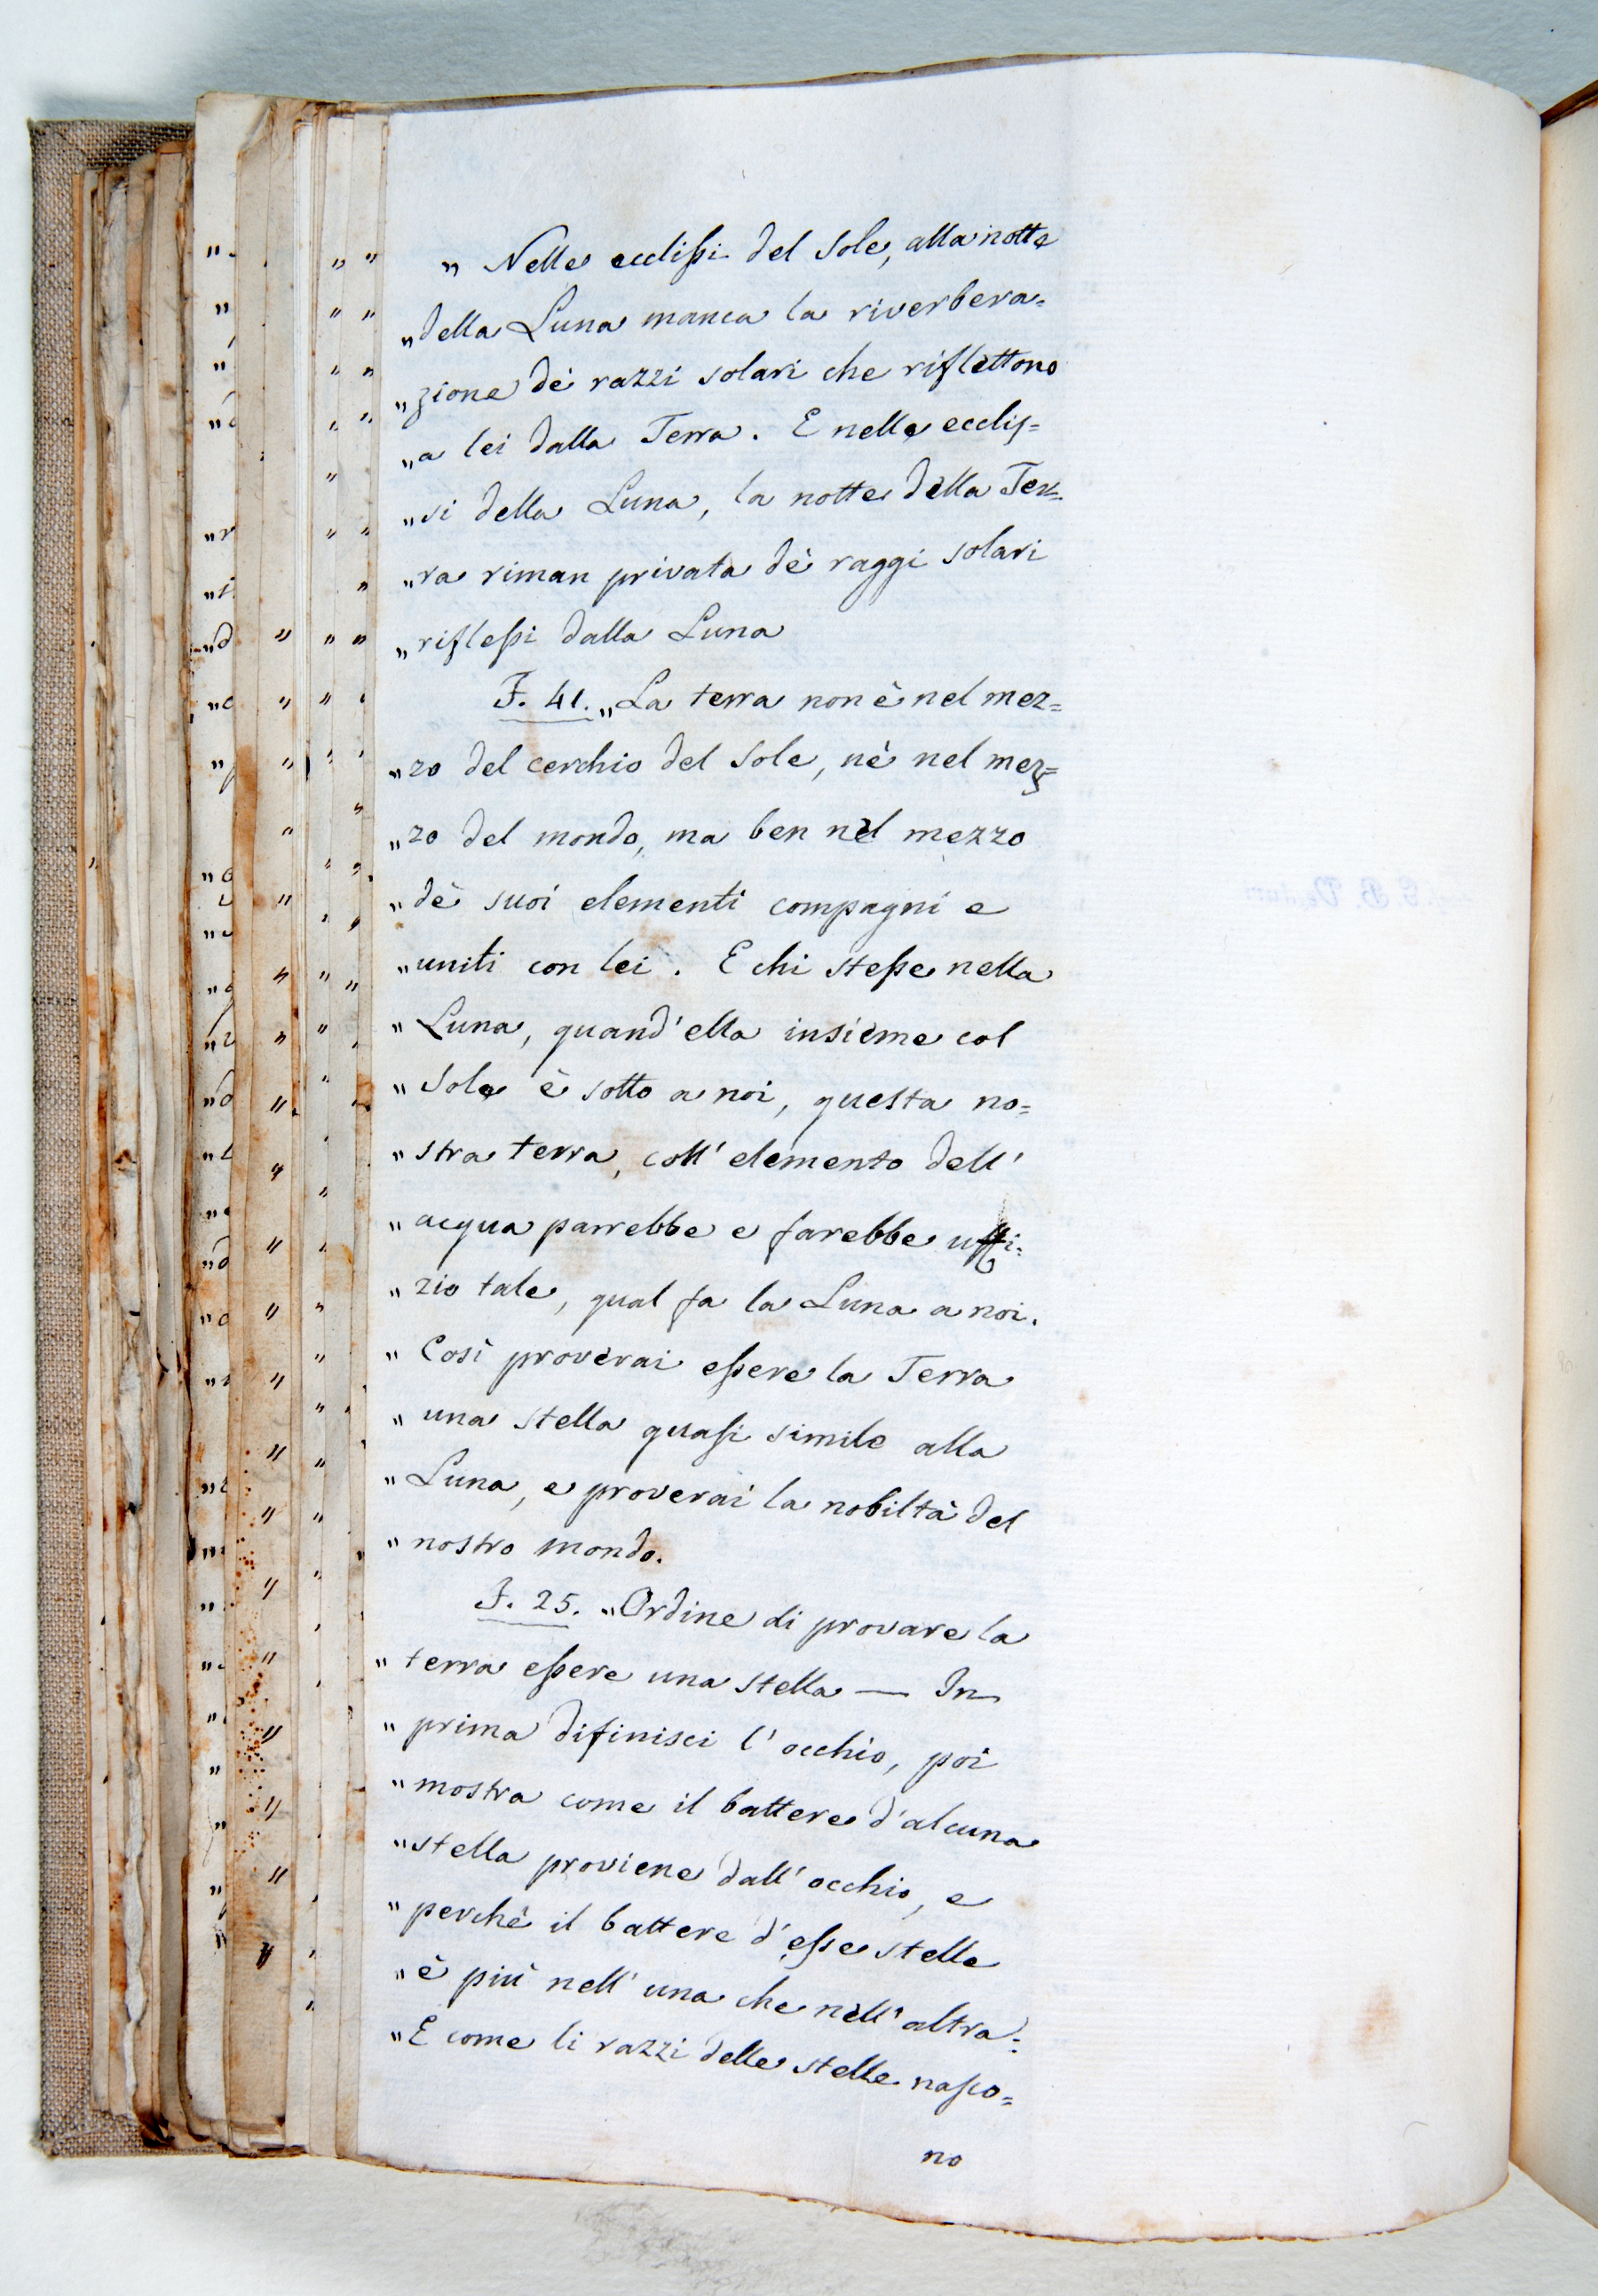 „ Nelle ecclißi del Sole, alla notte
„della Luna manca la riverbera=
„zione dè razzi solari che riflettono
„a lei dalla Terra. E nelle ecclis=
„si della Luna, la notte della Ter=
„ra riman privata dè raggi solari
„rifleßi dalla Luna
F. 41. „La terra non è nel mez=
„zo del cerchio del Sole, nè nel mez=
„zo del mondo, ma ben nel mezzo
„dè suoi elementi compagni e
„uniti con lei. E chi steße nella
„Luna, quand'ella insieme col
„Sole è sotto a noi, questa no=
„stra terra, coll'elemento dell'
„acqua parrebbe e farebbe uffi=
„zio tale, qual fa la Luna a noi.
„Così proverai eßere la Terra
„una stella quasi simile alla
„Luna, e proverai la nobiltà del
„nostro mondo.
F. 25. „Ordine di provare la
„terra eßere una stella — In
„prima difinisci l'occhio, poi
„mostra come il battere d'alcuna
„stella proviene dall'occhio, e
„perchè il battere d'eße stelle
„è più nell'una che nell'altra:
„E come li razzi delle stelle nasco=
no